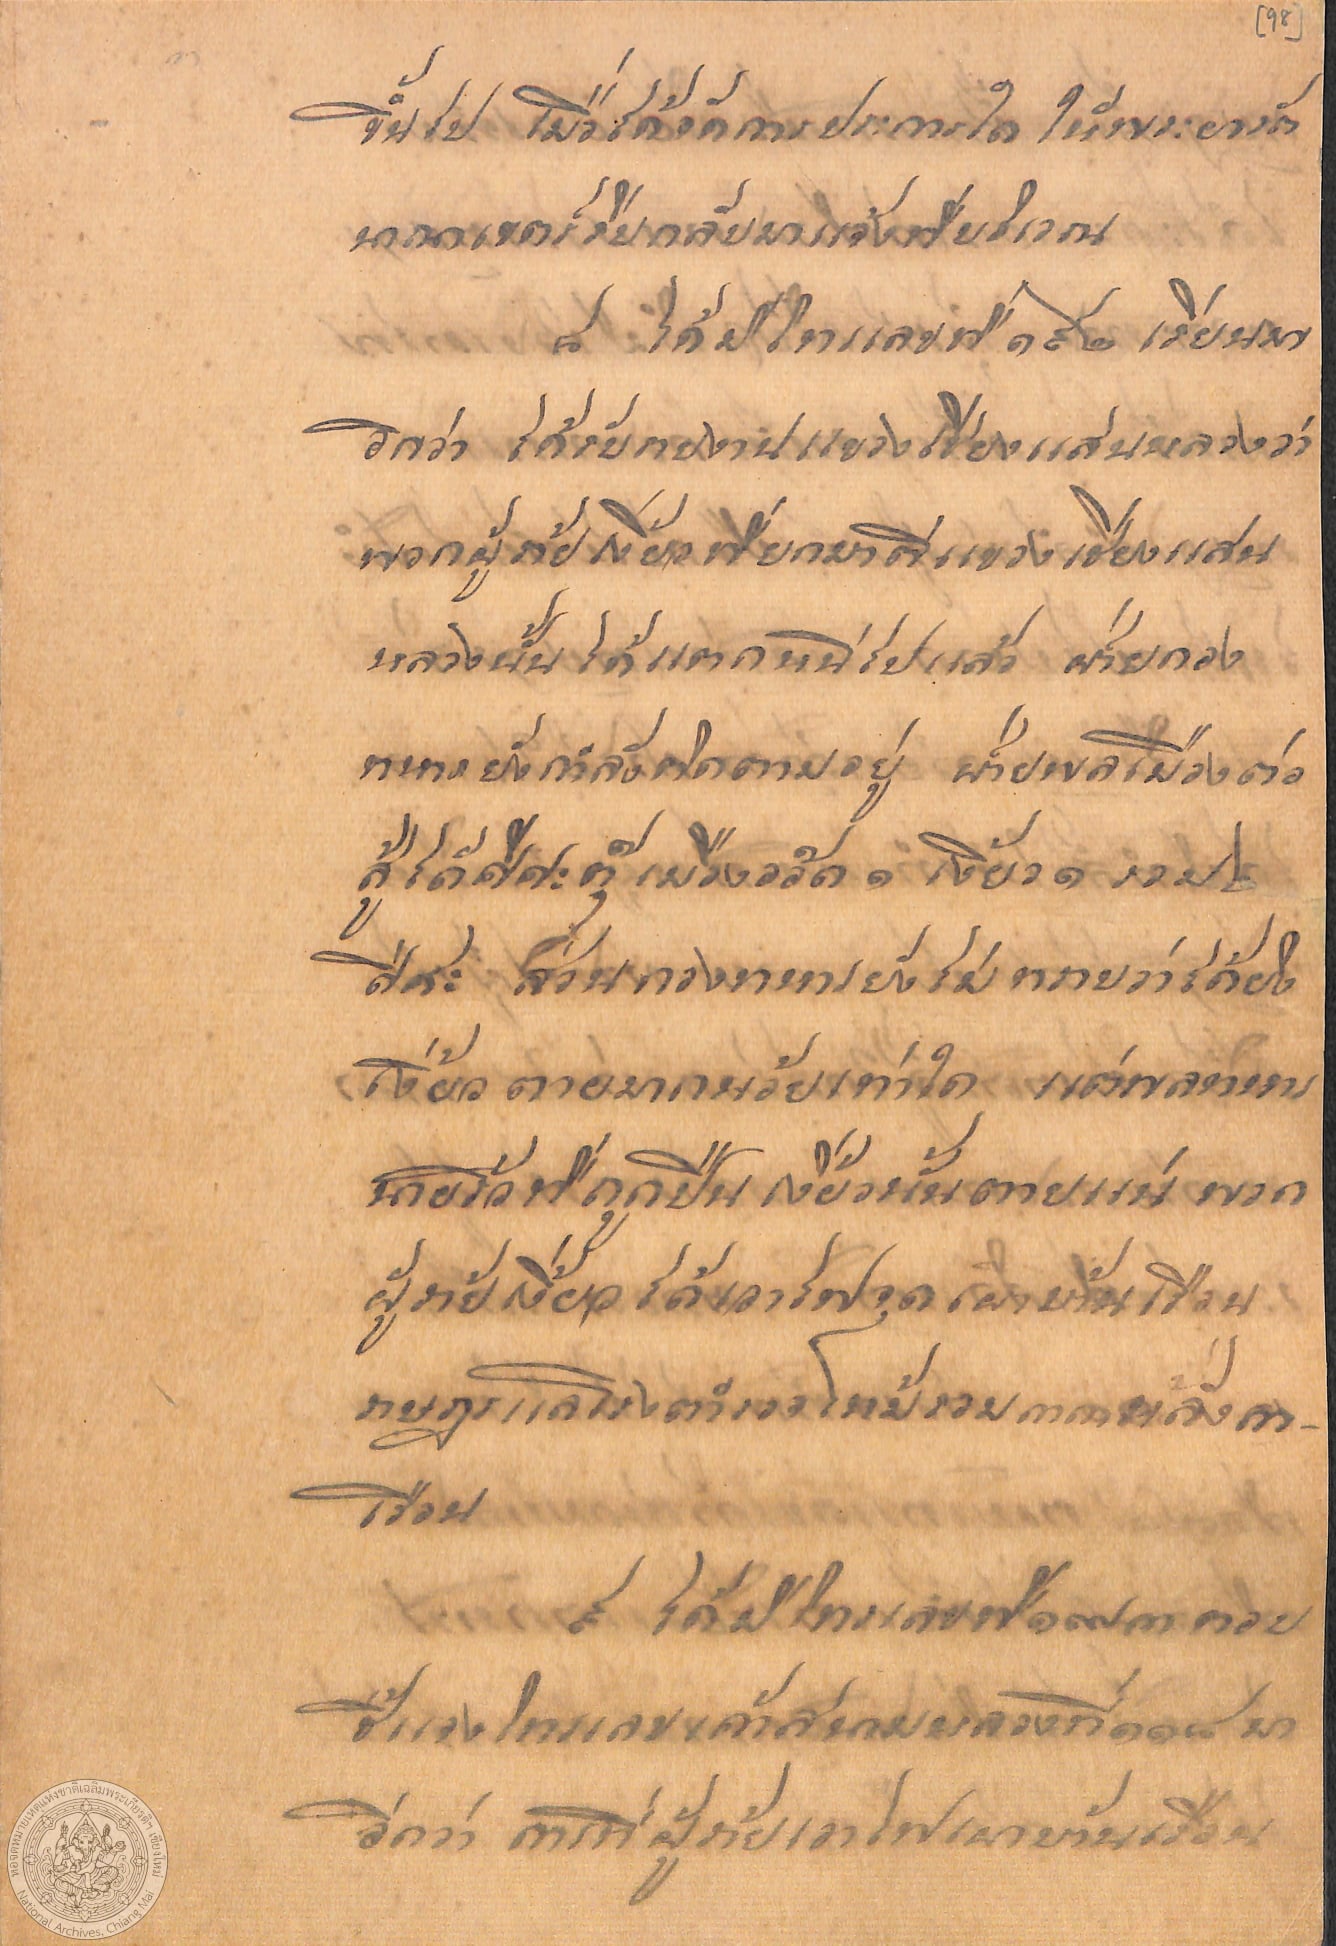 [98]
ขึ้นไป เมื่อได้จัดการประการใด ให้พระยาวัง
กลับมาแจ้งที่
๘ ได้มีโทรเลขที่ ๑๙๒ เรียนมา
อีกว่า ได้รับรายงานแขวงเชียงแสนหลวงว่า
พวกผู้ร้ายเงี้ยวที่ยกมาตีแขวงเชียงแสน
หลวงนั้น ได้แตกหนีไปแล้ว ฝ่ายกอง
ทหารยังกำลังติดตามอยู่ ฝ่ายพลเมืองต่อ
สู้ได้ศีศะตุ๊เมืองออ๊ด ๑ เงี้ยว ๑ รวม ๒
ศีศะ ส่วนกองทหารยังไม่ทราบว่าได้ยิง
เงี้ยวตายมากน้อยเท่าใด แต่พลทหาร
นายร้อยที่ถูกปืนเงี้ยวนั้นตายแน่ พวก
ผู้ร้ายเงี้ยวได้เอาไฟจุดเผาบ้านเรือน
ราษฎรแลโรงตำรวจไหม้รวม ๓๓ หลังคา-
เรือน
๙ ได้มีโทรเลขที่ ๑๙๓ ตอบ
ชี้แจงโทรเลขเค้าสนามหลวงที่ ๑๑๘ มา
อีกว่า การที่ผู้ร้ายเอาไฟเผาบ้านเรือน
หอจดหมายเหตุแห่งชาติเฉลิมพระเกียรติฯ เชียงใหม่
National Archives, Chiang Mai